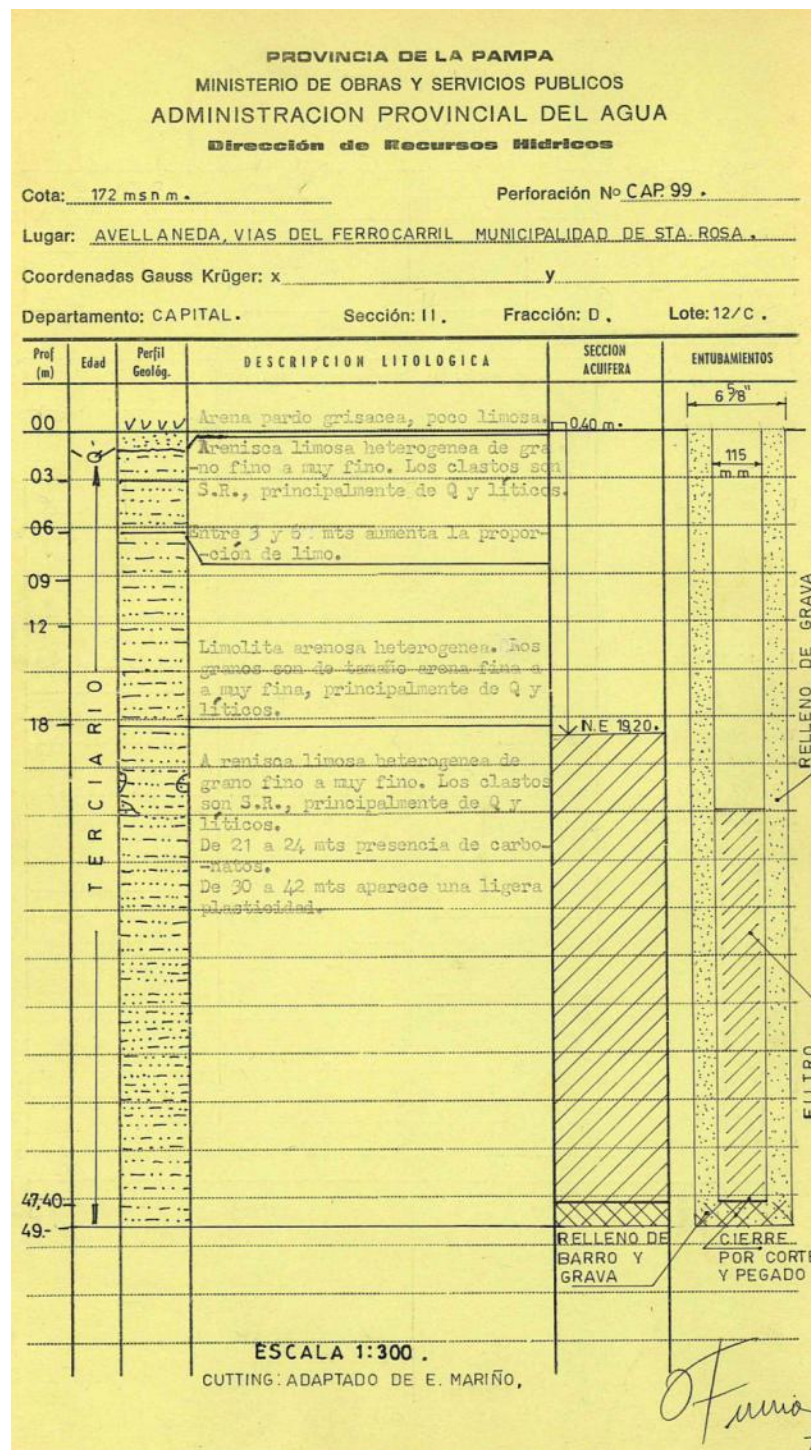 PROVINCIA DE LA PAMPA
MINISTERIO DE OBRAS Y SERVICIOS PUBLICOS
ADMINISTRACION PROVINCIAL DEL AGUA
Dirección de Recursos Hídricos
Cota: 172 msnm.
Perforación Nº CAP. 99.
Lugar: AVELLANEDA, VIAS DEL FERROCARRIL MUNICIPALIDAD DE STA. ROSA.
Coordenadas Gauss Krüger: x y
Departamento: CAPITAL. Sección: II. Fracción: D. Lote: 12/C.
Prof (m)
Edad
Perfil Geológ.
DESCRIPCION LITOLOGICA
SECCION ACUIFERA
ENTUBAMIENTOS
6 5/8"
00
Arena pardo grisacea, poco limosa.
0.40 m.
Q
Arenisca limosa heterogenea de gra
-no fino a muy fino. Los clastos son
S.R., principalmente de Q y líticos.
115
m.m
03
06
Entre 3 y 6 mts aumenta la propor-
-ción de limo.
09
12
Limolita arenosa heterogenea. Los
granos son de tamaño arena fina a
a muy fina, principalmente de Q y
líticos.
RELLENO DE GRAVA
18
N.E 19,20.
TERCIARIO
A renisca limosa heterogenea de
grano fino a muy fino. Los clastos
son S.R., principalmente de Q y
líticos.
De 21 a 24 mts presencia de carbo-
-natos.
De 30 a 42 mts aparece una ligera
plasticidad.
FILTRO
47,40
49.-
RELLENO DE
BARRO Y
GRAVA
CIERRE
POR CORTE
Y PEGADO
ESCALA 1:300.
CUTTING: ADAPTADO DE E. MARIÑO,